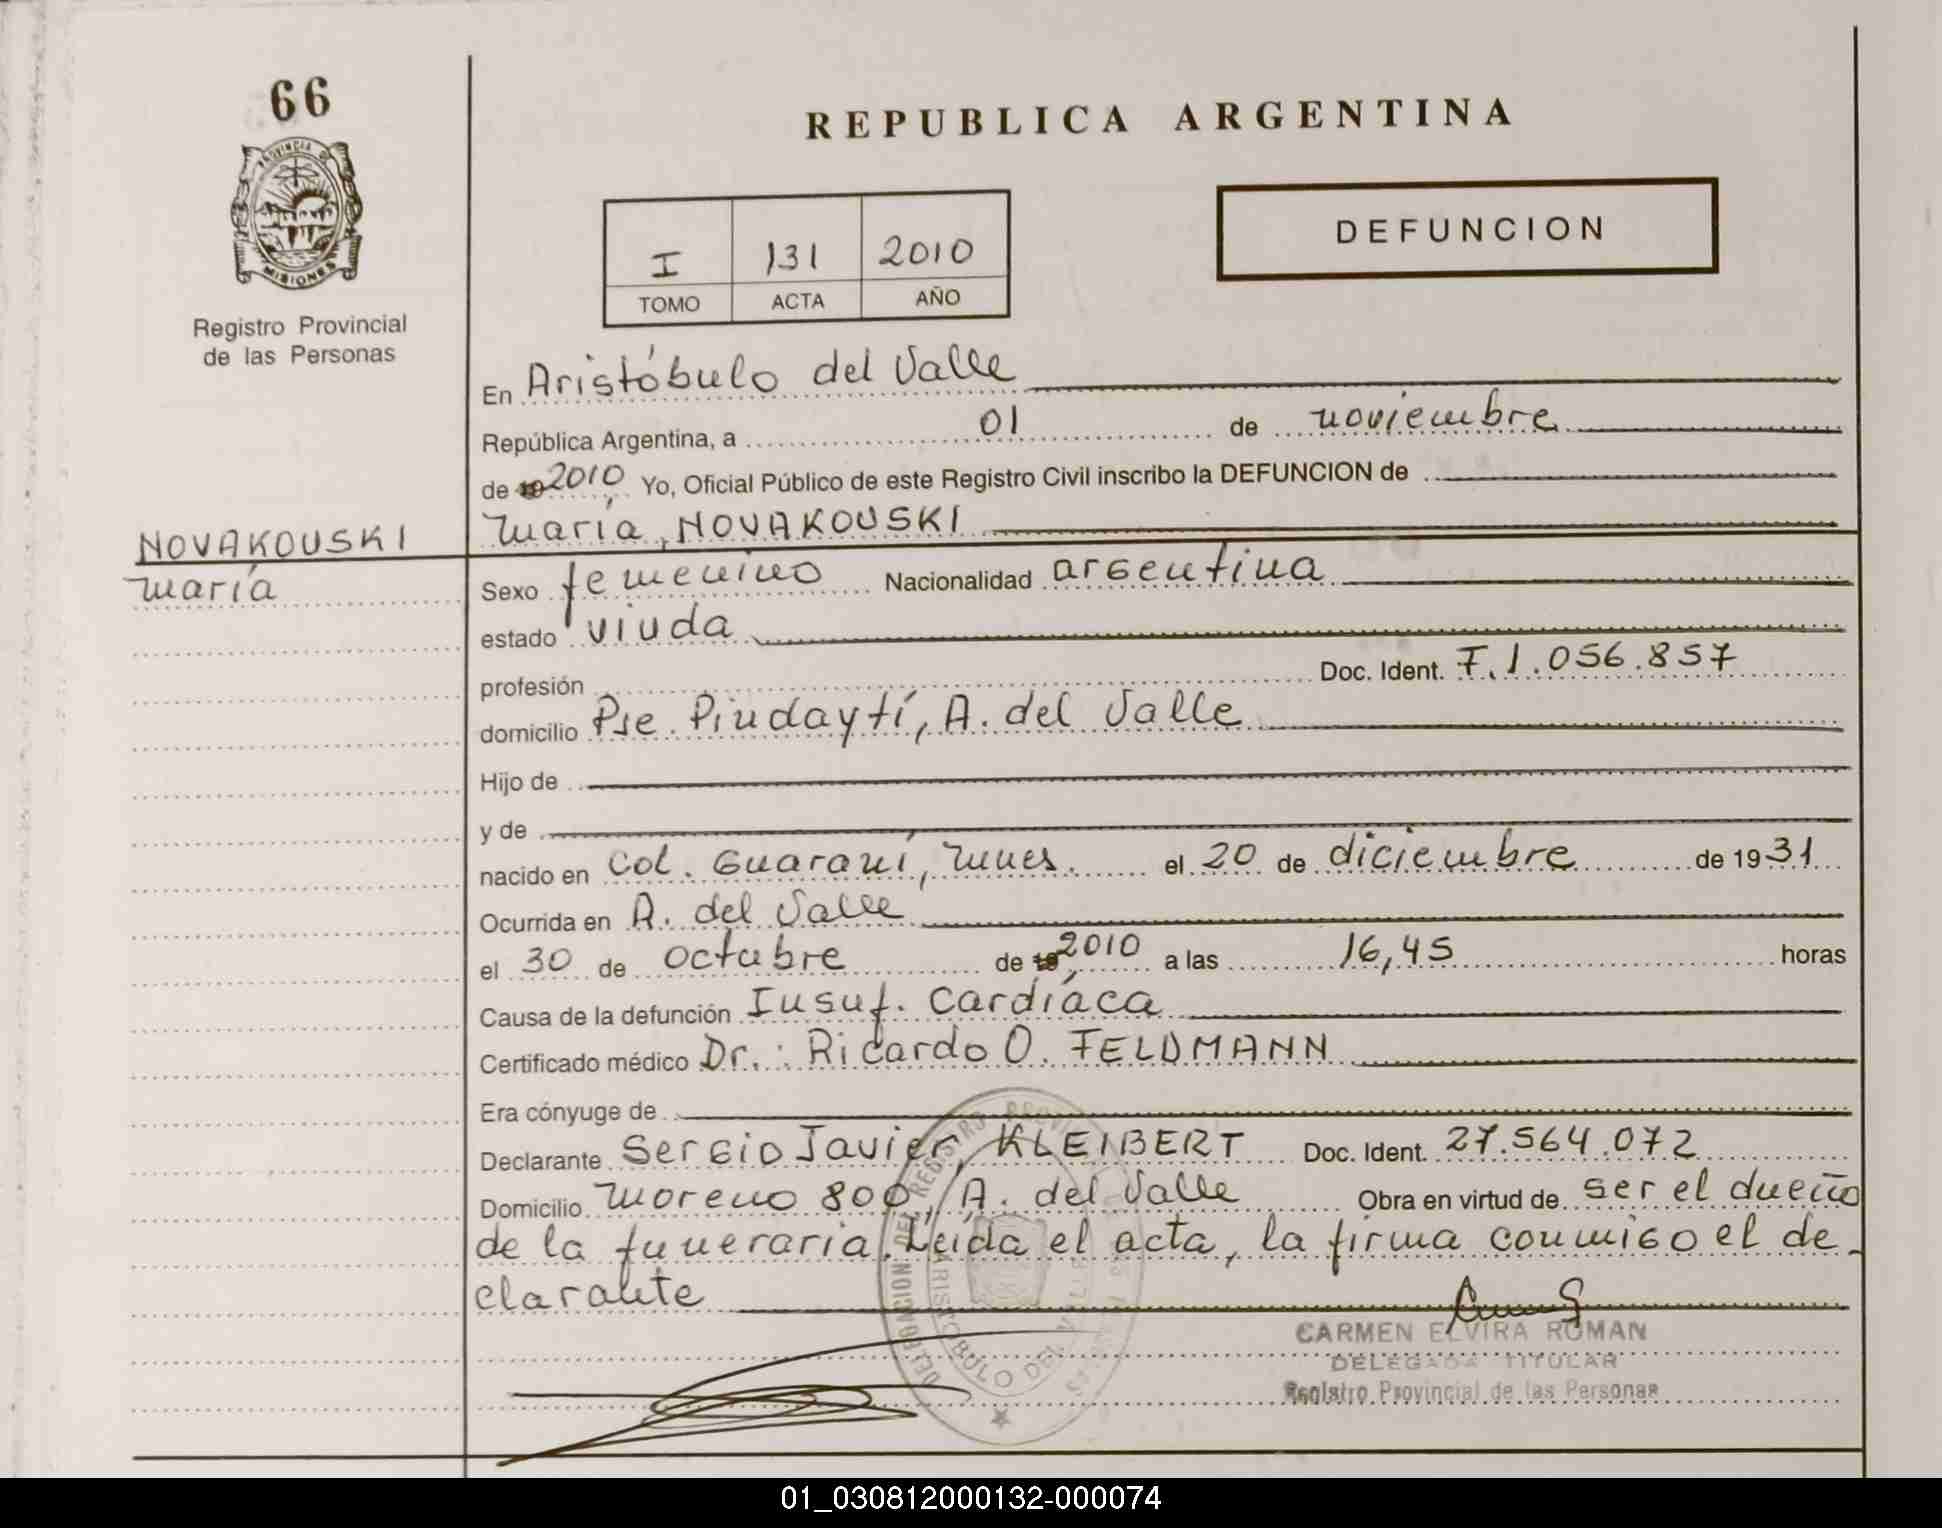 66
PROVINCIA DE
MISIONES
Registro Provincial
de las Personas
REPUBLICA ARGENTINA
I 131 2010
TOMO ACTA AÑO
DEFUNCION
En Aristóbulo del Valle
República Argentina, a 01 de noviembre
de 19 2010 Yo, Oficial Público de este Registro Civil inscribo la DEFUNCION de
María, NOVAKOUSKI
NOVAKOUSKI
María
Sexo femenino Nacionalidad argentina
estado viuda
profesión Doc. Ident. F.1.056.857
domicilio Pje. Pindaytí, A. del Valle
Hijo de
y de
nacido en Col. Guaraní, Mnes. el 20 de diciembre de 1931
Ocurrida en A. del Valle
el 30 de octubre de 19 2010 a las 16,45 horas
Causa de la defunción Insuf. Cardíaca
Certificado médico Dr.: Ricardo O. FELDMANN
Era cónyuge de
Declarante Sergio Javier, KLEIBERT Doc. Ident. 27.564.072
Domicilio Moreno 800, A. del Valle Obra en virtud de ser el dueño
de la funeraria. Leída el acta, la firma conmigo el de_
clarante
DELEGACION DEL REGISTRO
ARISTOBULO DEL VALLE
CARMEN ELVIRA ROMAN
DELEGADA TITULAR
Registro Provincial de las Personas
01_030812000132-000074